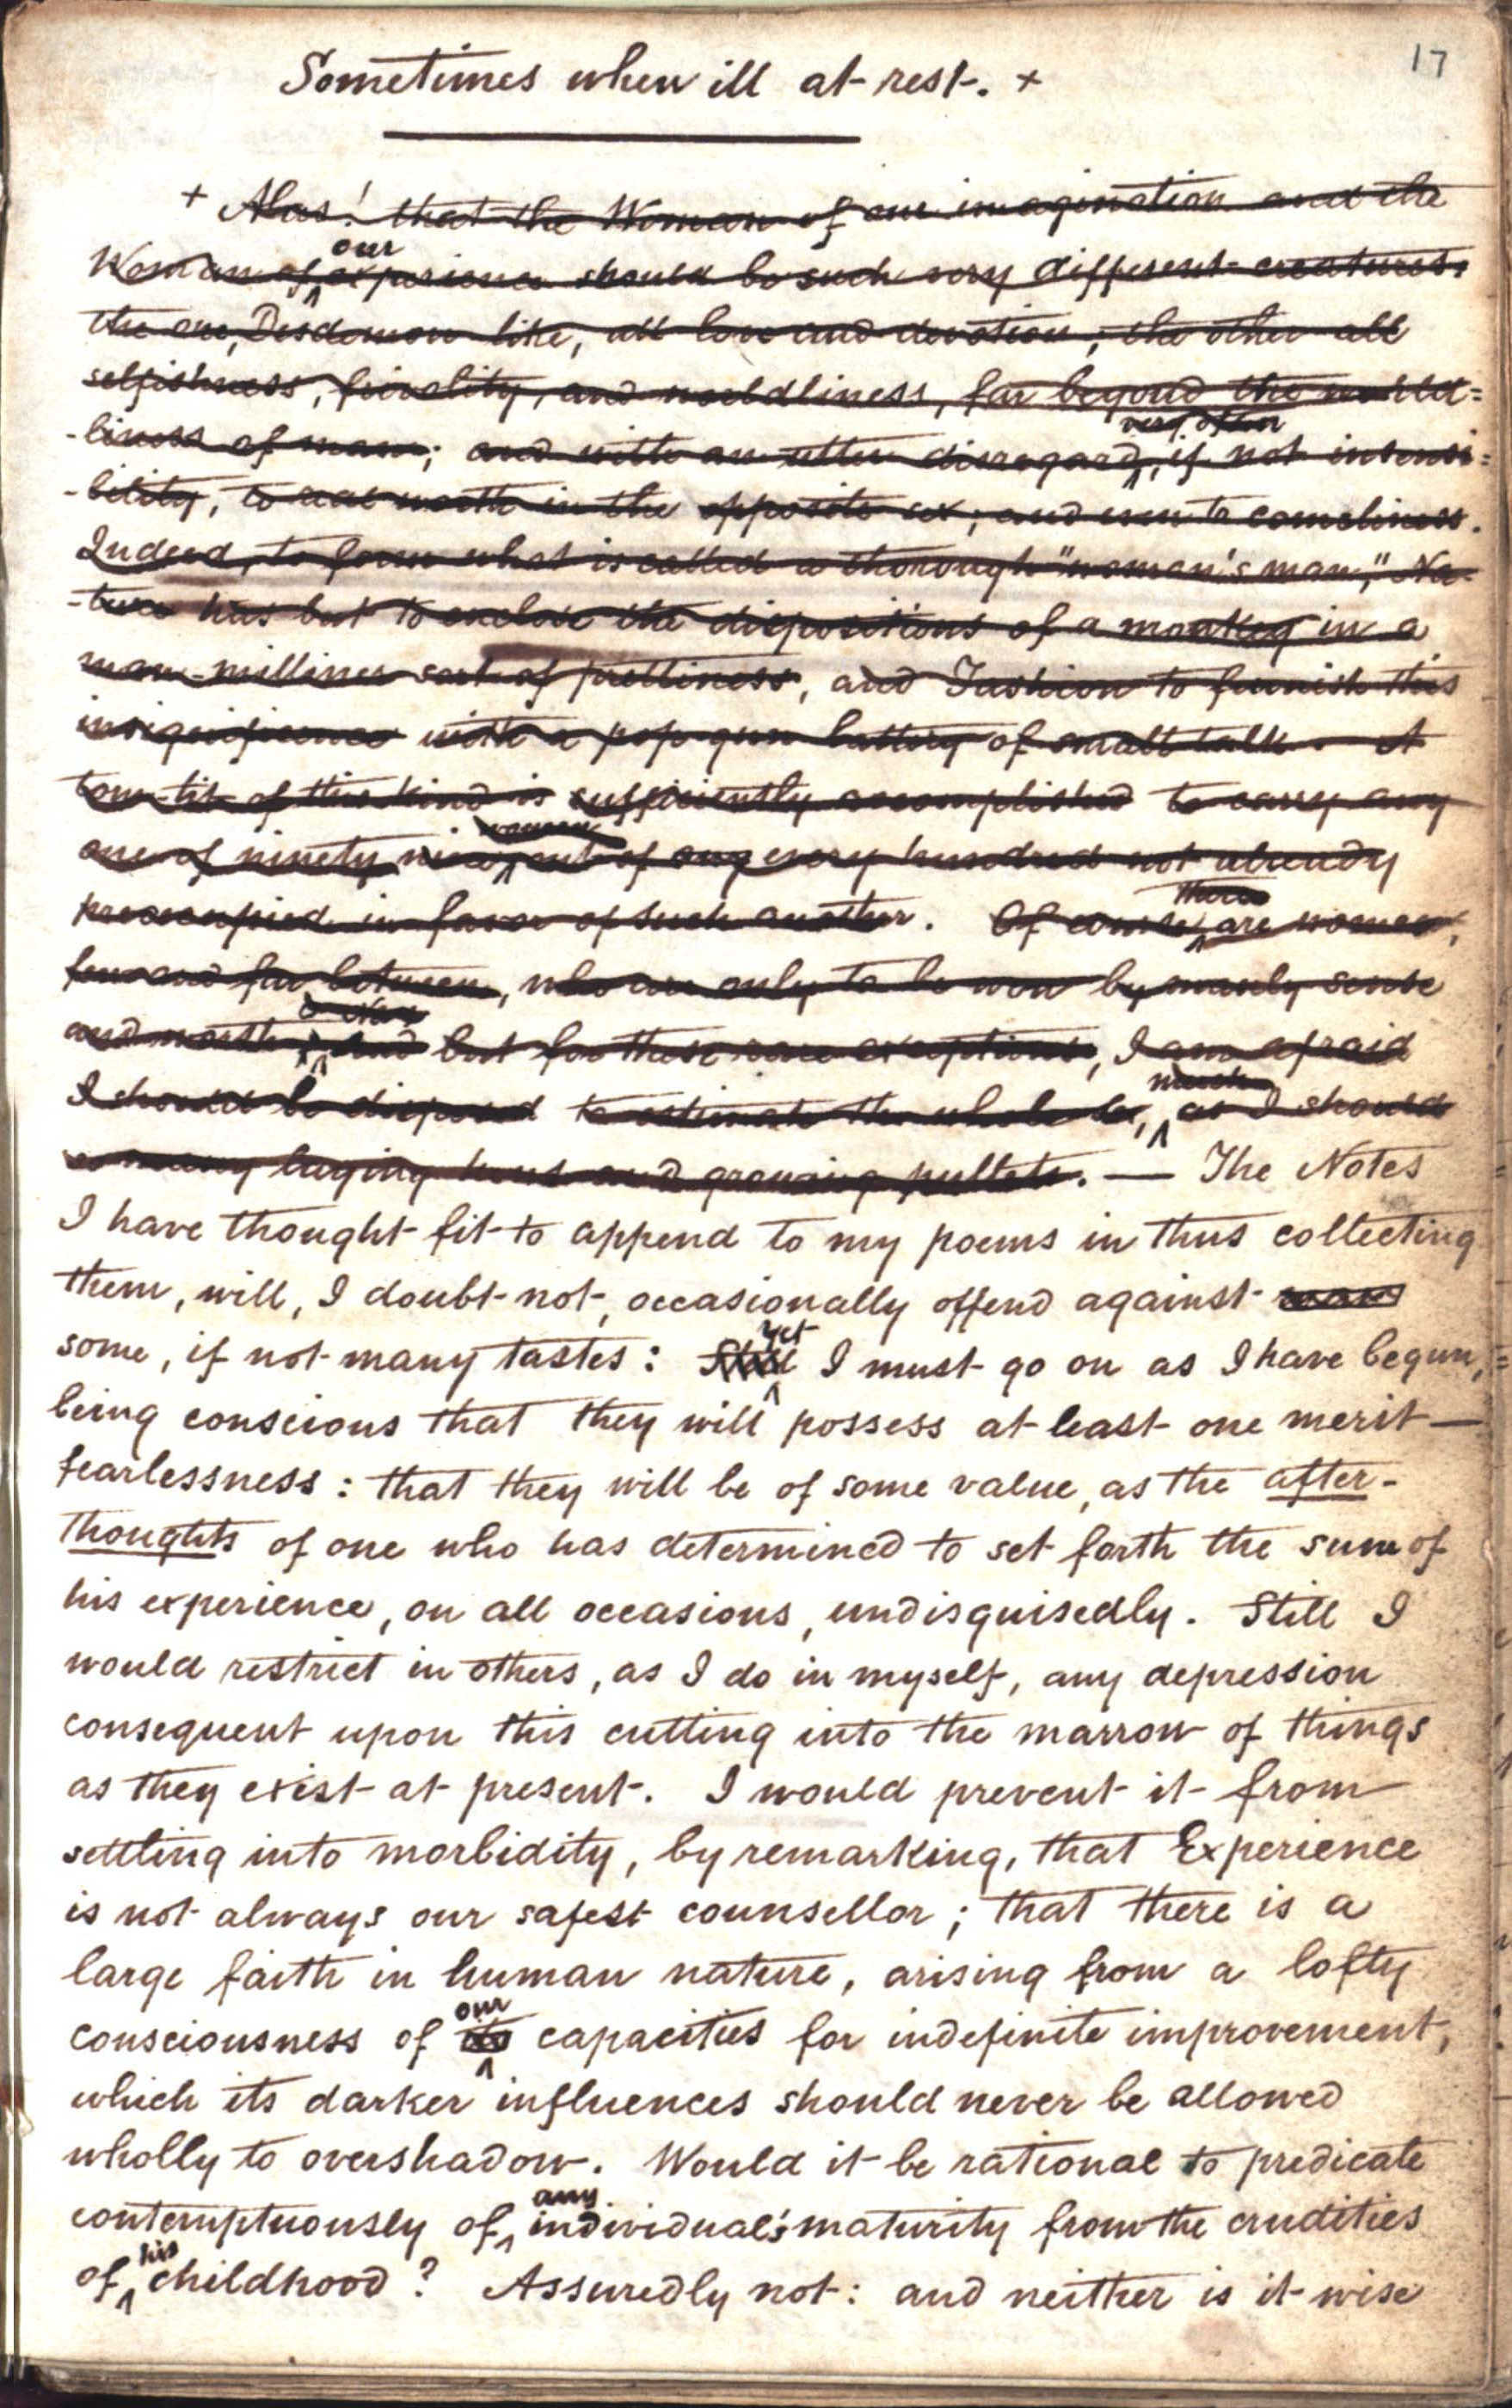 17
Sometimes when ill at rest. +
+ Alas! that the Woman of our imagination and the
Woman of our experience should be such very different creatures:
the one, Desdemon like, all love and devotion; the other all
selfishness, frivolity, and worldliness, far beyond the world=
-liness of man; and with an utter disregard, very often, if not insensi=
-bility, to real worth in the opposite sex; and even to comeliness.
Indeed, to form what is called a thorough "woman's man," Na-
-ture has but to enclose the dispositions of a monkey in a
man-milliner sort of prettiness, and Fashion to furnish this
insignificance with a pop-gun battery of small talk. A
tom-tit of this kind is sufficiently accomplished to carry any
one of ninety nine women out of any every hundred not already
preoccupied in favor of such another. Of course, there are women,
few and far between, who are only to be won by manly sense
and worth; and but for these rare exceptions, I am afraid
I should be disposed to estimate the whole sex, much as I should
so many laying hens and growing pullets. — The Notes
I have thought fit to append to my poems in thus collecting
them, will, I doubt not, occasionally offend against
some, if not many tastes: Still yet I must go on as I have begun,
being conscious that they will possess at least one merit—
fearlessness: that they will be of some value, as the after-
thoughts of one who has determined to set forth the sum of
his experience, on all occasions, undisguisedly. Still I
would restrict in others, as I do in myself, any depression
consequent upon this cutting into the marrow of things
as they exist at present. I would prevent it from
settling into morbidity, by remarking, that Experience
is not always our safest counsellor; that there is a
large faith in human nature, arising from a lofty
consciousness of its our capacities for indefinite improvement,
which its darker influences should never be allowed
wholly to overshadow. Would it be rational to predicate
contemptuously of any individual's maturity from the crudities
of his childhood? Assuredly not: and neither is it wise